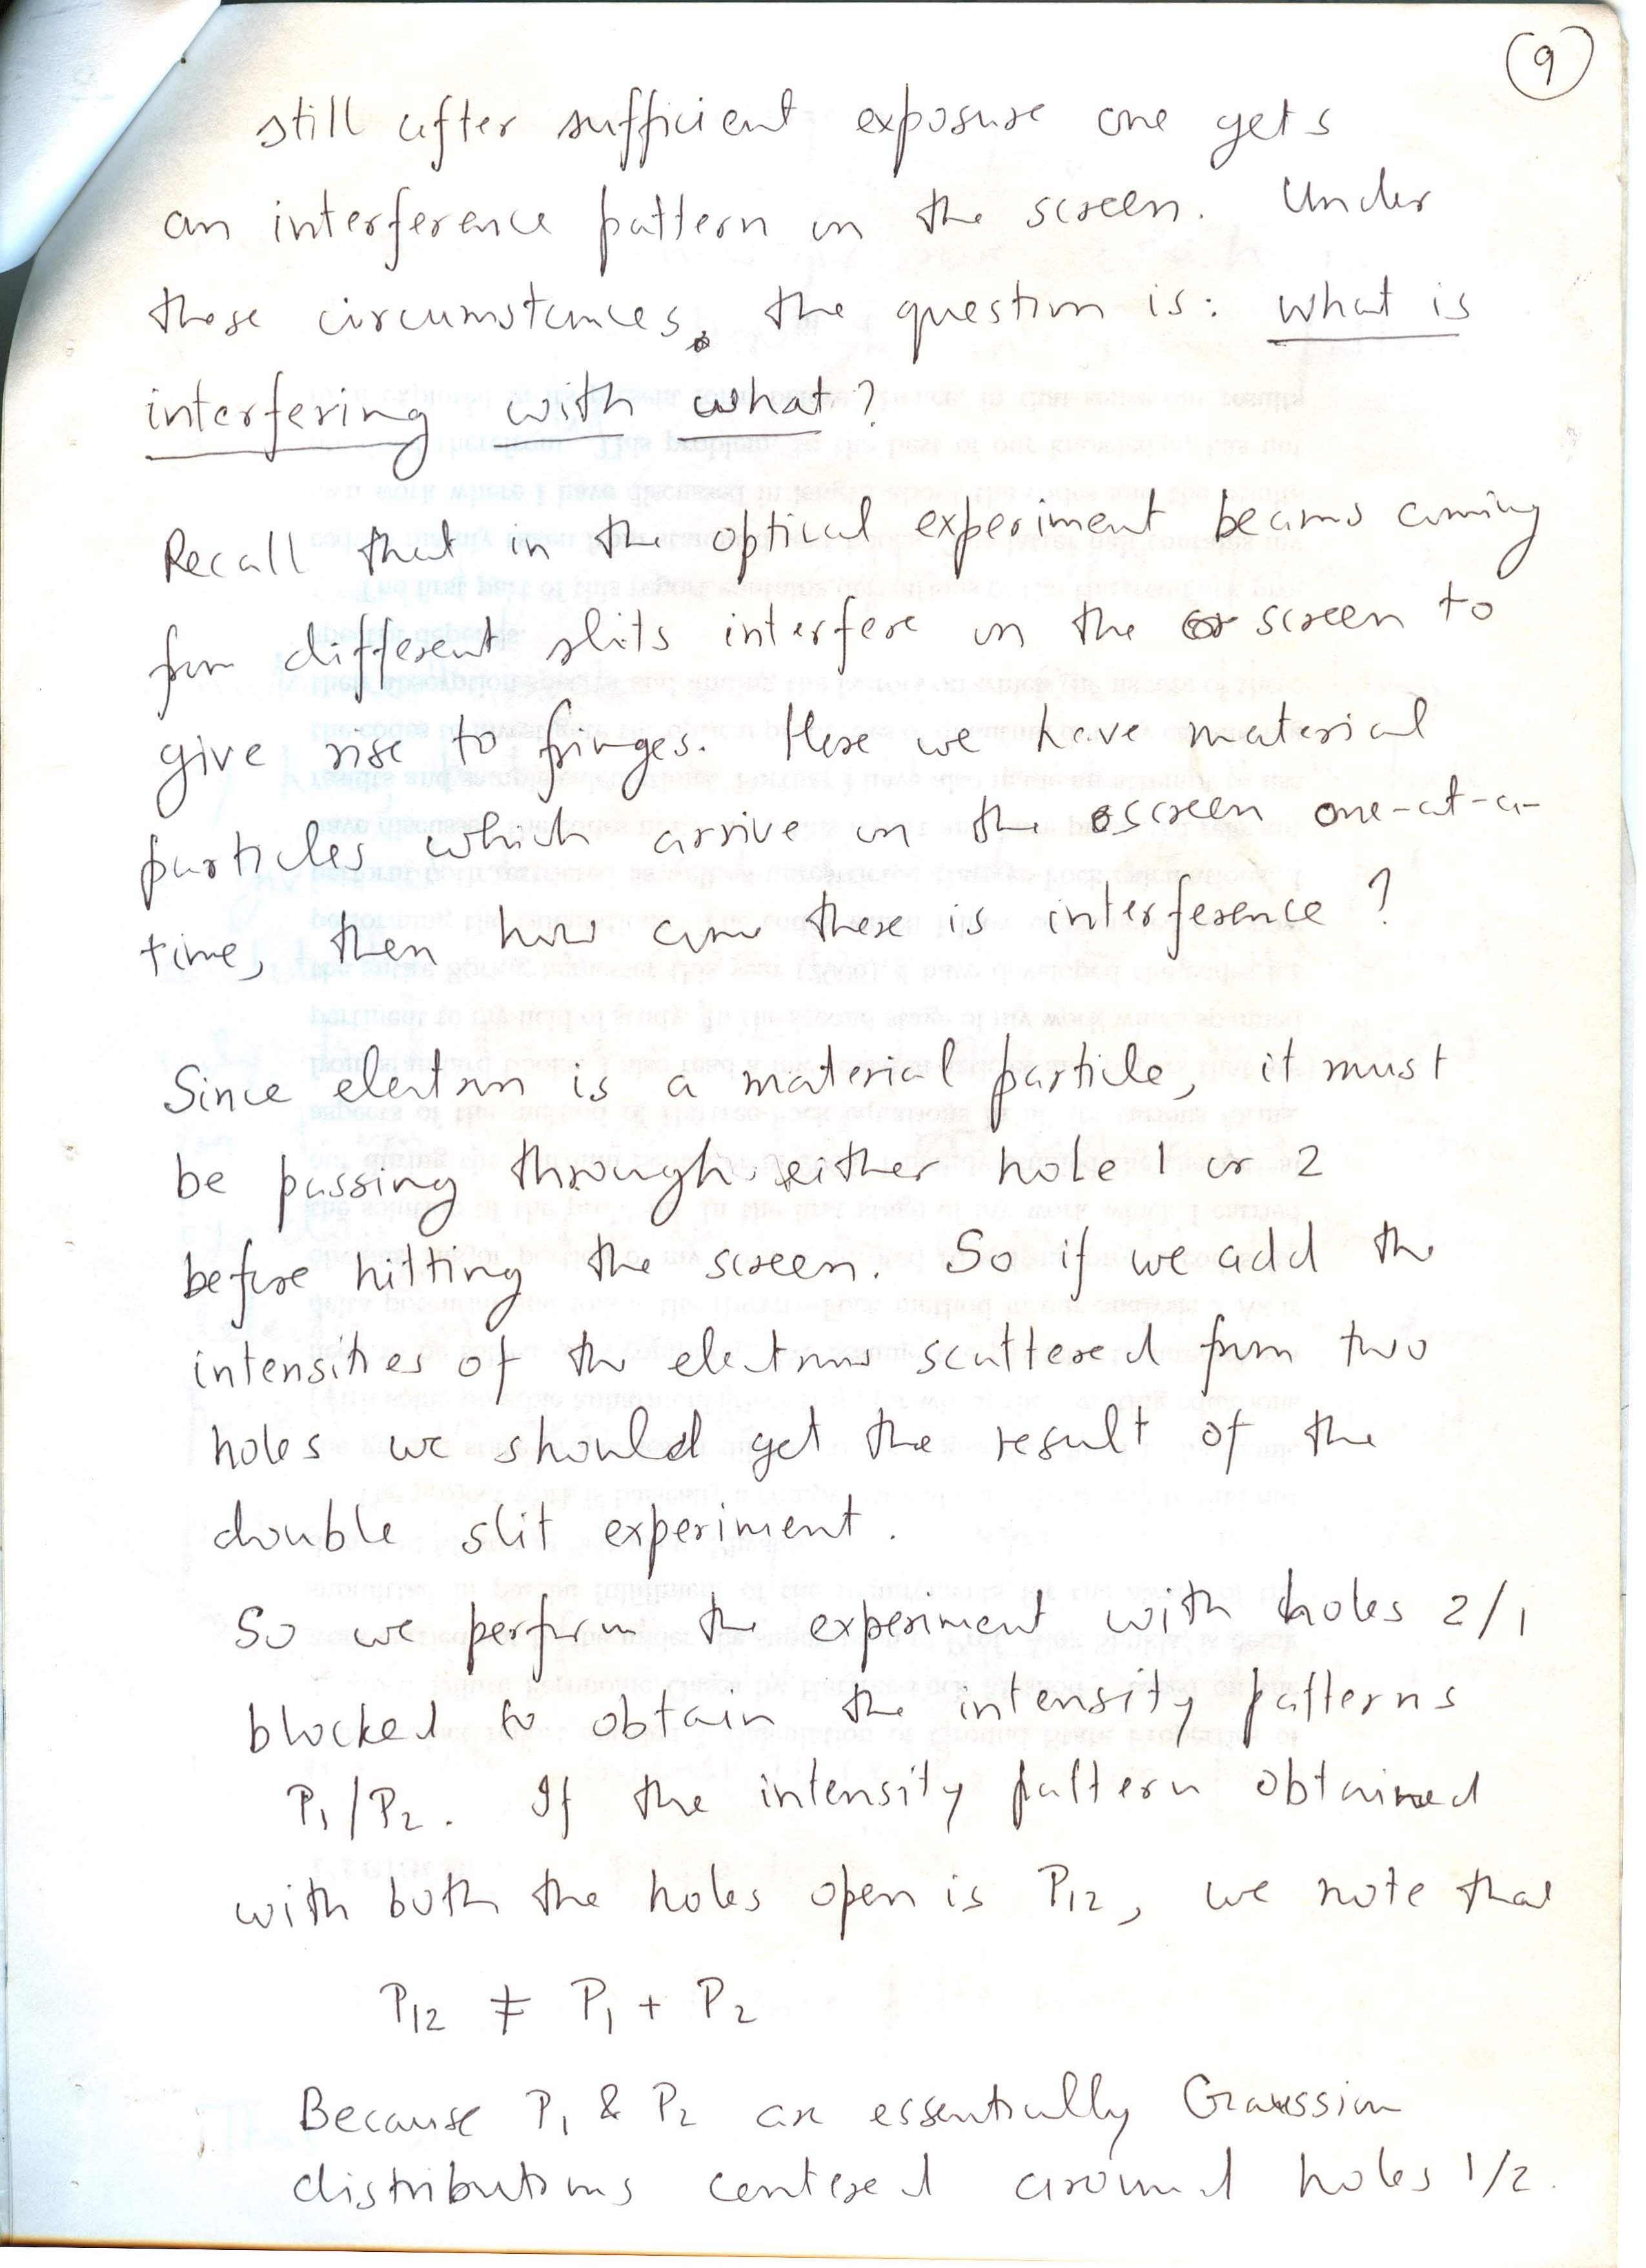 9
still after sufficient exposure one gets
an interference pattern on the screen. Under
these circumstances, the question is: what is
interfering with what?
Recall that in the optical experiment beams coming
from different slits interfere on the screen to
give rise to fringes. Here we have material
particles which arrive on the screen one-at-a-
time, then how come there is interference?
Since electron is a material particle, it must
be passing through either hole 1 or 2
before hitting the screen. So if we add the
intensities of the electrons scattered from two
holes we should get the result of the
double slit experiment.
So we perform the experiment with holes 2/1
blocked to obtain the intensity patterns
P1/P2. If the intensity pattern obtained
with both the holes open is P12, we note that
P12 ≠ P1 + P2
Because P1 & P2 are essentially Gaussian
distributions centered around holes 1/2.